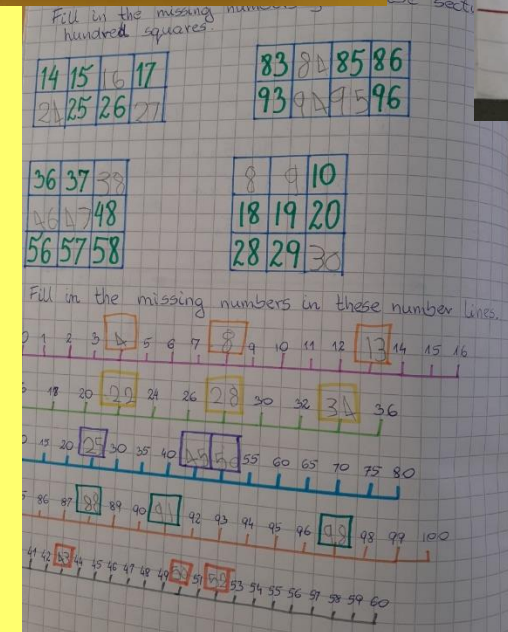 Fill in the missing
hundred squares.
14 15 16 17
24 25 26 27
83 84 85 86
93 94 95 96
36 37 38
46 47 48
56 57 58
8 9 10
18 19 20
28 29 30
Fill in the missing numbers in these number lines.
0 1 2 3 4 5 6 7 8 9 10 11 12 13 14 15 16
18 20 22 24 26 28 30 32 34 36
15 20 25 30 35 40 45 50 55 60 65 70 75 80
86 87 88 89 90 91 92 93 94 95 96 98 98 99 100
41 42 43 44 45 46 47 48 49 50 51 52 53 54 55 56 57 58 59 60